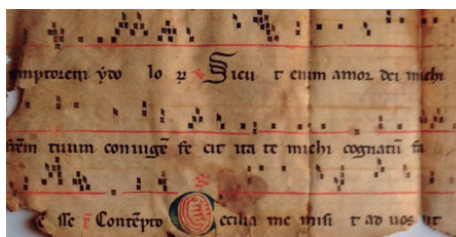 mptorem ydo lo ꝝ ꝟ Sicu t enim amor dei michi
trem tuum conuigē fe cit ita te michi cognatū fa
c sse ꝟ Contēpto Cecilia me misit t ad uos ut